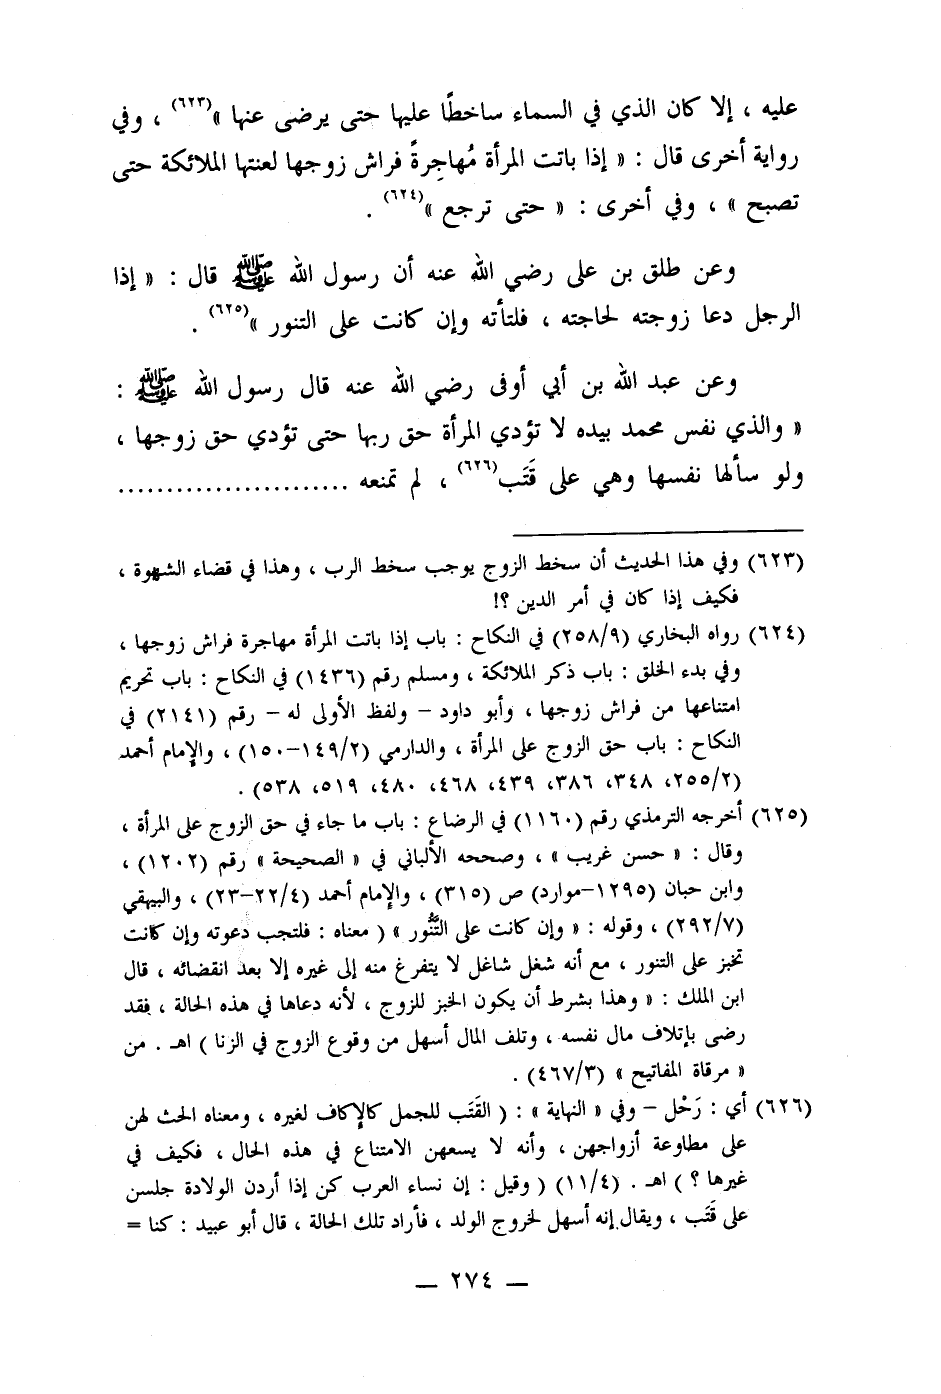 عليه ، إلا كان الذي في السماء ساخطًا عليها حتى يرضى عنها »(٦٢٣) ، وفي
رواية أخرى قال : « إذا باتت المرأة مُهاجِرةً فراش زوجها لعنتها الملائكة حتى
تصبح » ، وفي أخرى : « حتى ترجع »(٦٢٤) .
وعن طلق بن على رضي الله عنه أن رسول الله ﷺ قال : « إذا
الرجل دعا زوجته لحاجته ، فلتأته وإن كانت على التنور »(٦٢٥) .
وعن عبد الله بن أبي أوفى رضي الله عنه قال رسول الله ﷺ :
« والذي نفس محمد بيده لا تؤدي المرأة حق ربها حتى تؤدي حق زوجها ،
ولو سألها نفسها وهي على قَتَب(٦٢٦) ، لم تمنعه ........................
(٦٢٣) وفي هذا الحديث أن سخط الزوج يوجب سخط الرب ، وهذا في قضاء الشهوة ،
فكيف إذا كان في أمر الدين ؟!
(٦٢٤) رواه البخاري (٢٥٨/٩) في النكاح : باب إذا باتت المرأة مهاجرة فراش زوجها ،
وفي بدء الخلق : باب ذكر الملائكة ، ومسلم رقم (١٤٣٦) في النكاح : باب تحريم
امتناعها من فراش زوجها ، وأبو داود – ولفظ الأولى له – رقم (٢١٤١) في
النكاح : باب حق الزوج على المرأة ، والدارمي (١٤٩/٢–١٥٠) ، والإمام أحمد
(٢٥٥/٢، ٣٤٨، ٣٨٦، ٤٣٩، ٤٦٨، ٤٨٠، ٥١٩، ٥٣٨) .
(٦٢٥) أخرجه الترمذي رقم (١١٦٠) في الرضاع : باب ما جاء في حق الزوج على المرأة ،
وقال : « حسن غريب » ، وصححه الألباني في « الصحيحة » رقم (١٢٠٢) ،
وابن حبان (١٢٩٥–موارد) ص (٣١٥) ، والإمام أحمد (٢٢/٤–٢٣) ، والبيهقي
(٢٩٢/٧) ، وقوله : « وإن كانت على التَّنُّور » ( معناه : فلتجب دعوته وإن كانت
تخبز على التنور ، مع أنه شغل شاغل لا يتفرغ منه إلى غيره إلا بعد انقضائه ، قال
ابن الملك : « وهذا بشرط أن يكون الخبز للزوج ، لأنه دعاها في هذه الحالة ، فقد
رضى بإتلاف مال نفسه ، وتلف المال أسهل من وقوع الزوج في الزنا ) اهـ . من
« مرقاة المفاتيح » (٤٦٧/٣) .
(٦٢٦) أي : رَحْل – وفي « النهاية » : ( القَتَب للجمل كالإكاف لغيره ، ومعناه الحث لهن
على مطاوعة أزواجهن ، وأنه لا يسعهن الامتناع في هذه الحال ، فكيف في
غيرها ؟ ) اهـ . (١١/٤) ( وقيل : إن نساء العرب كن إذا أردن الولادة جلسن
على قَتَب ، ويقال إنه أسهل لخروج الولد ، فأراد تلك الحالة ، قال أبو عبيد : كنا =
— ٢٧٤ —